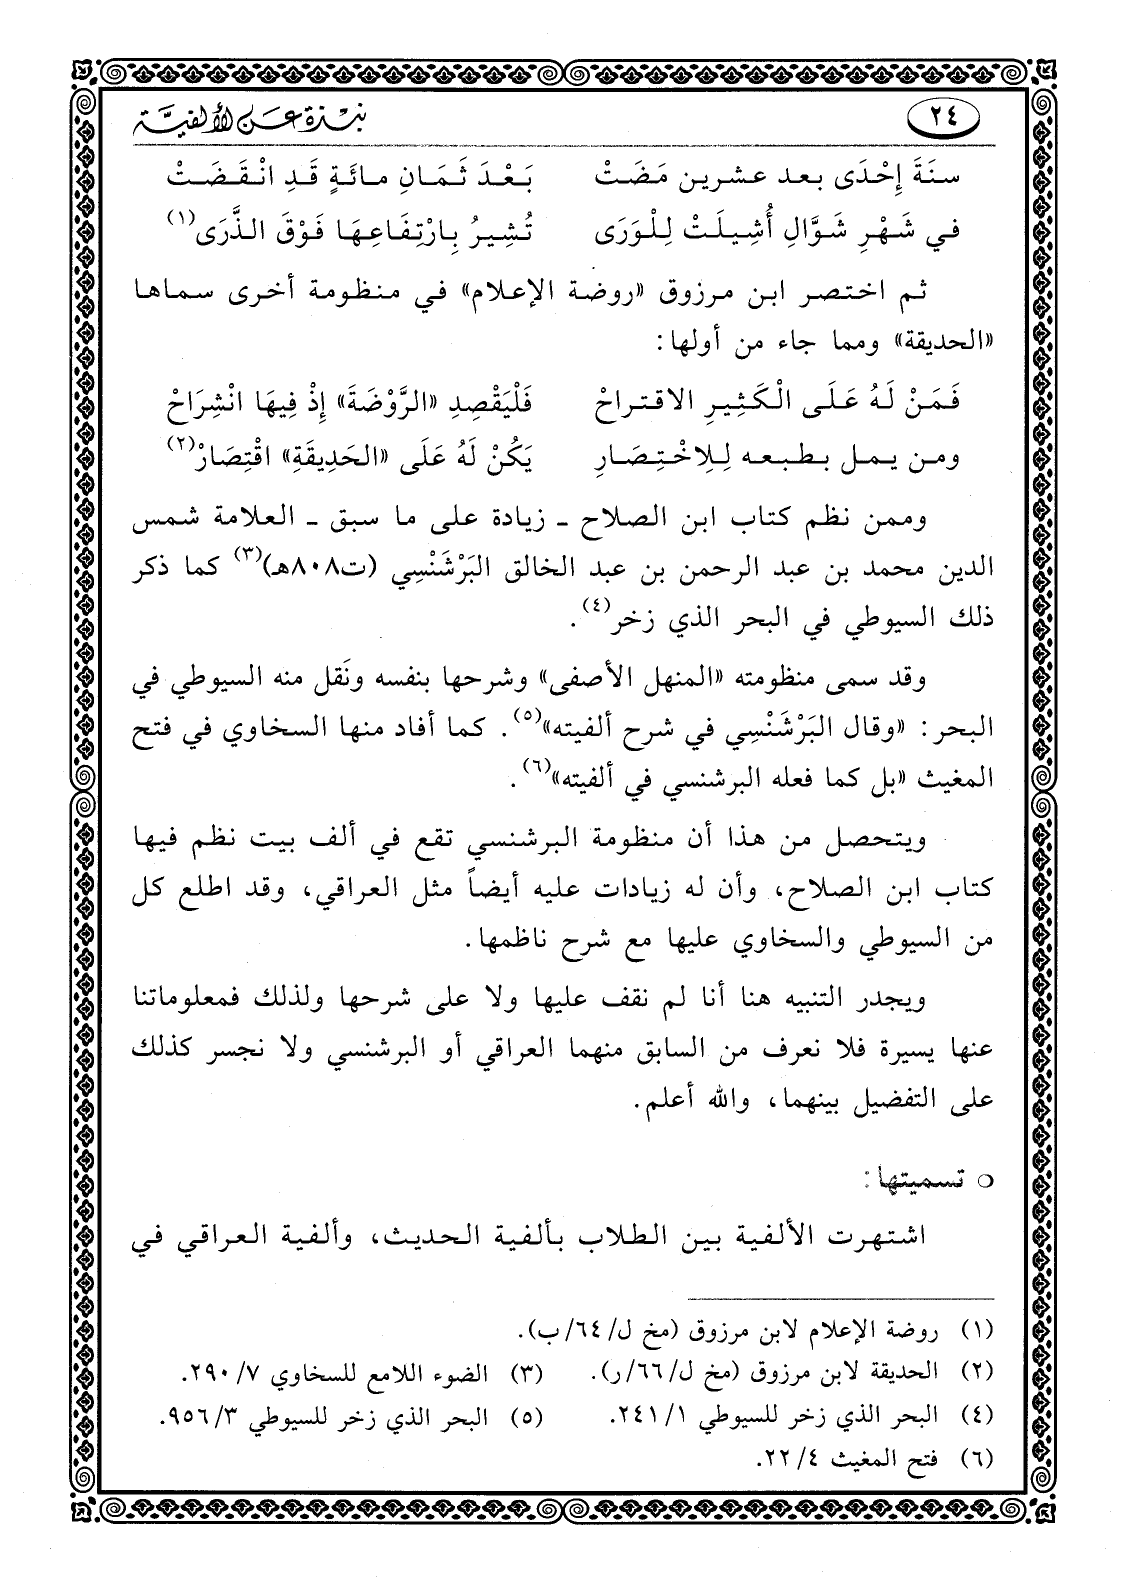 ٢٤ نبذة عن الألفية
سنَةَ إِحْدَى بعد عشرين مَضَتْ بَعْدَ ثَمَانِ مائَةٍ قَدِ انْقَضَتْ
في شَهْرِ شَوَّالِ أُشِيلَتْ لِلْوَرَى تُشِيرُ بِارْتِفَاعِهَا فَوْقَ الذَّرَى(١)
ثم اختصر ابن مرزوق «روضة الإعلام» في منظومة أخرى سماها
«الحديقة» ومما جاء من أولها:
فَمَنْ لَهُ عَلَى الْكَثِيرِ الاقتراحْ فَلْيَقْصِدِ «الرَّوْضَةَ» إِذْ فِيهَا انْشِرَاحْ
ومن يمل بطبعه لِلاخْتِصَارِ يَكُنْ لَهُ عَلَى «الحَدِيقَةِ» اقْتِصَارْ(٢)
وممن نظم كتاب ابن الصلاح ـ زيادة على ما سبق ـ العلامة شمس
الدين محمد بن عبد الرحمن بن عبد الخالق البَرْشَنْسِي (ت٨٠٨هـ)(٣) كما ذكر
ذلك السيوطي في البحر الذي زخر(٤).
وقد سمى منظومته «المنهل الأصفى» وشرحها بنفسه ونَقل منه السيوطي في
البحر: «وقال البَرْشَنْسِي في شرح ألفيته»(٥). كما أفاد منها السخاوي في فتح
المغيث «بل كما فعله البرشنسي في ألفيته»(٦).
ويتحصل من هذا أن منظومة البرشنسي تقع في ألف بيت نظم فيها
كتاب ابن الصلاح، وأن له زيادات عليه أيضاً مثل العراقي، وقد اطلع كل
من السيوطي والسخاوي عليها مع شرح ناظمها.
ويجدر التنبيه هنا أنا لم نقف عليها ولا على شرحها ولذلك فمعلوماتنا
عنها يسيرة فلا نعرف من السابق منهما العراقي أو البرشنسي ولا نجسر كذلك
على التفضيل بينهما، والله أعلم.
○ تسميتها:
اشتهرت الألفية بين الطلاب بألفية الحديث، وألفية العراقي في
(١) روضة الإعلام لابن مرزوق (مخ ل/٦٤/ب).
(٢) الحديقة لابن مرزوق (مخ ل/٦٦/ر). (٣) الضوء اللامع للسخاوي ٧/ ٢٩٠.
(٤) البحر الذي زخر للسيوطي ١/ ٢٤١. (٥) البحر الذي زخر للسيوطي ٣/ ٩٥٦.
(٦) فتح المغيث ٤/ ٢٢.